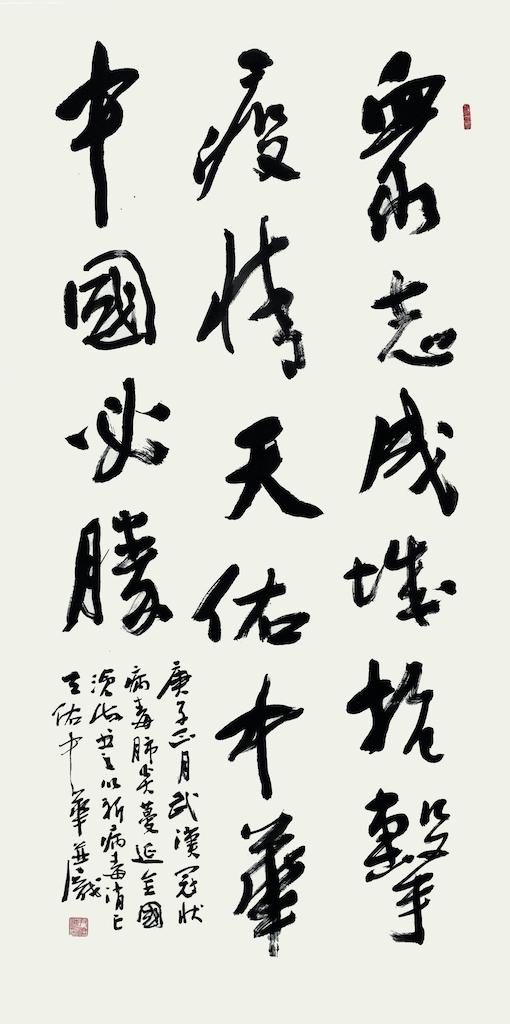 眾志成城抗擊
疫情天佑中華
中國必勝
庚子正月武漢冠狀
病毒肺炎蔓延全國
書之以祈病毒消亡
天佑中華